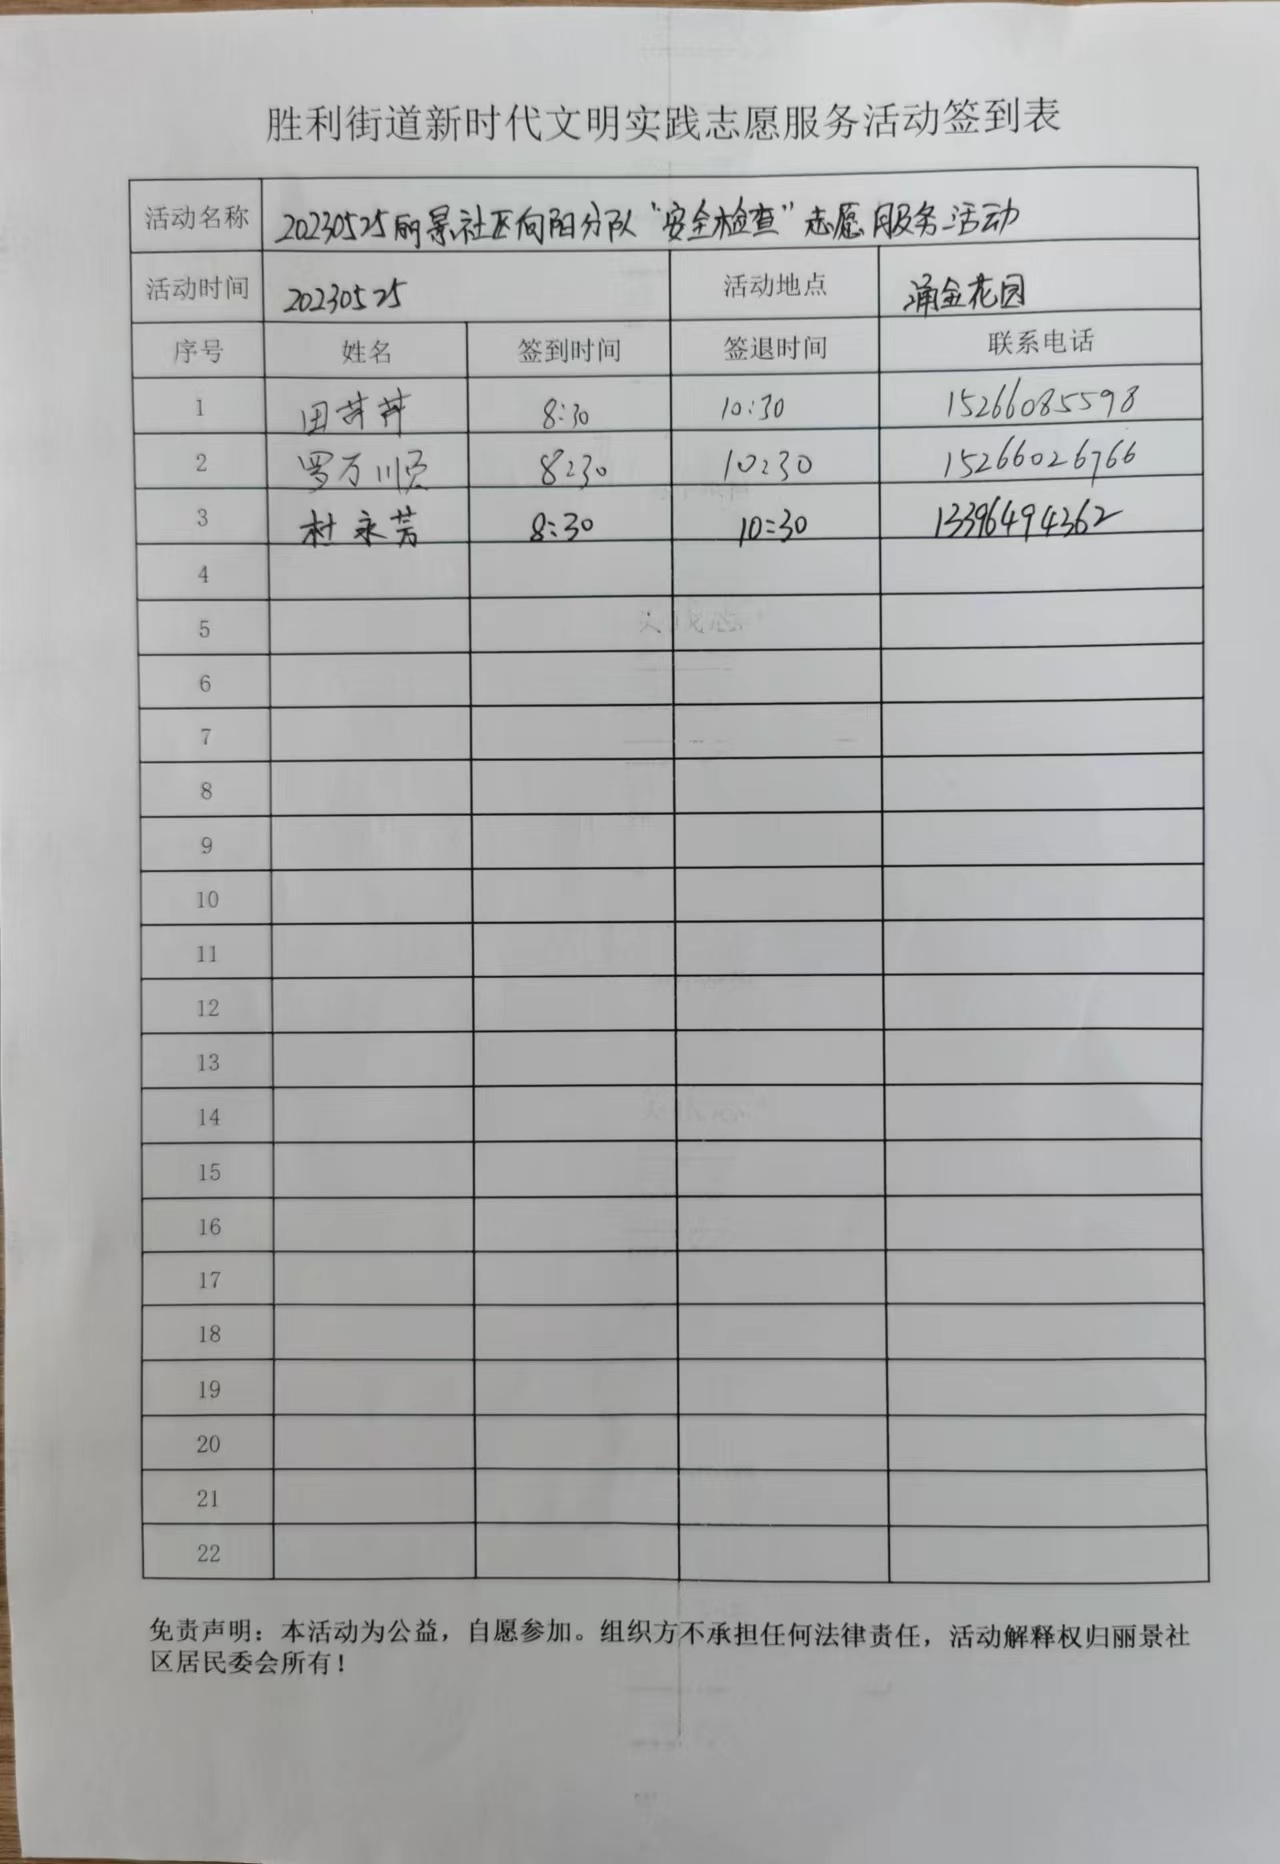 胜利街道新时代文明实践志愿服务活动签到表
活动名称 20230525丽景社区向阳分队“安全检查”志愿服务活动
活动时间 20230525 活动地点 涌金花园
序号 姓名 签到时间 签退时间 联系电话
1 田芹芹 8:30 10:30 15266085598
2 罗万顺 8:30 10:30 15266026766
3 杜永芳 8:30 10:30 13396494362
4
5
6
7
8
9
10
11
12
13
14
15
16
17
18
19
20
21
22
免责声明：本活动为公益，自愿参加。组织方不承担任何法律责任，活动解释权归丽景社
区居民委会所有！